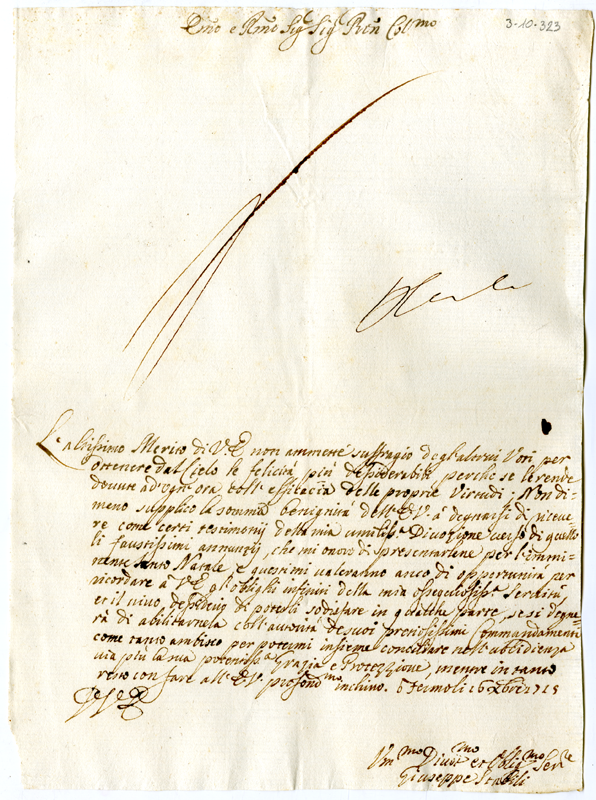 3-10-323
Emo e Rmo Sigr Sigr Prōn Colmo
L'altissimo Merito di V.E. non ammette suffragio degl'altrui Voti per
ottenere dal Cielo le felicità più desiderabili, perche se le rende
dovute ad ogni ora coll' efficacia delle proprie Virtudi; Non di-
meno supplico la somma benignità dell'E.V. à degnarsi di riceve-
re come certi testimonij della mia umilissa Divozione verso di quella
li faustissimi annunzij, che mi onoro di presentarlene per l'immi-
nente Santo Natale, e questi mi valeranno anco di opportunità per
ricordare à V.E. gl'oblighi infiniti della mia ossequiosissa Servitù
et il vivo desiderio di poterli sodisfare in qualche parte, se si degne-
rà di abilitarnela coll'autorità de suoi pregiatissimi Commandamenti
come tanto ambisco per potermi insieme conciliare nell'ubbidienza
via più la sua potentissa Grazia e Protezzione, mentre in tanto
resto con fare all'E.V. profondmo inchino. Termoli 16 Xbre 1715
D V.E.
Ummo Divotmo et Obligmo Serre
Giuseppe Stabili